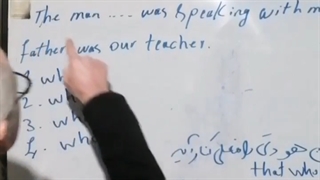 The man .... was speaking with m
father was our teacher.
1. wh
2. wh
3. wh
4. wh
that who